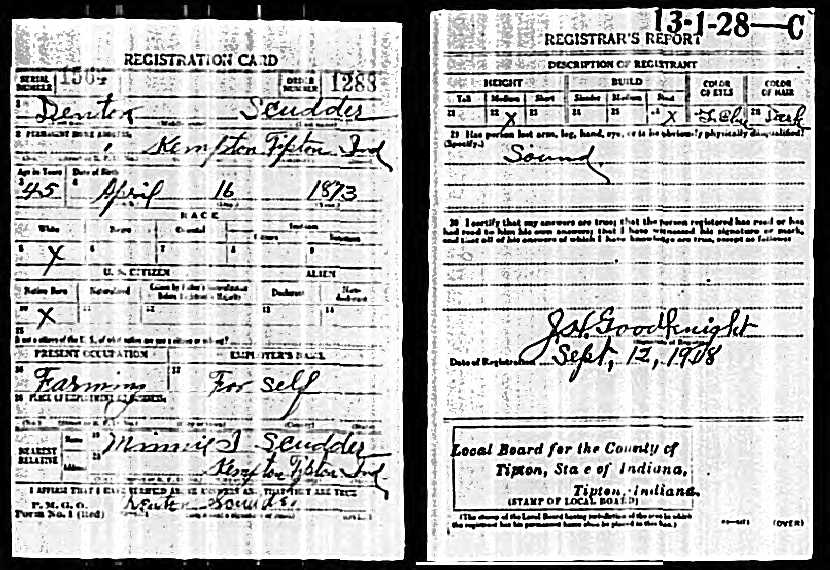 REGISTRATION CARD
SERIAL NUMBER 1564
ORDER NUMBER 1288
1 Denton Scudder
2 PERMANENT HOME ADDRESS
Kempton Tipton Ind
Age in Years Date of Birth
3 45 4 April 16 1873
RACE
White Negro Oriental Indian
5 X 6 7 8 9
U. S. CITIZEN ALIEN
Native Born Naturalized Declarant Non-declarant
10 X 11 12 13 14
15
If not a citizen of the U. S., of what nation are you a citizen or subject?
PRESENT OCCUPATION EMPLOYER'S NAME
16 Farming 17 For self
18 PLACE OF EMPLOYMENT OR BUSINESS
NEAREST RELATIVE
Name 19 Minnie J Scudder
Address 20 Kempton Tipton Ind
I AFFIRM THAT I HAVE VERIFIED ABOVE ANSWERS AND THAT THEY ARE TRUE
P. M. G. O.
Form No. 1 (Red) Denton Scudder
13-1-28—C
REGISTRAR'S REPORT
DESCRIPTION OF REGISTRANT
HEIGHT BUILD COLOR OF EYES COLOR OF HAIR
Tall Medium Short Slender Medium Stout
21 22 X 23 24 25 26 X 27 Blue 28 Dark
29 Has person lost arm, leg, hand, eye, or is he obviously physically disqualified?
(Specify.)
Sound
30 I certify that my answers are true; that the person registered has read or has
had read to him his own answers; that I have witnessed his signature or mark,
and that all of his answers of which I have knowledge are true, except as follows:
J. H. Goodknight
Date of Registration Sept, 12, 1918
Local Board for the County of
Tipton, State of Indiana,
Tipton, Indiana.
(STAMP OF LOCAL BOARD)
(The stamp of the Local Board having jurisdiction of the area in which
the registrant has his permanent home shall be placed in this box.)
(OVER)